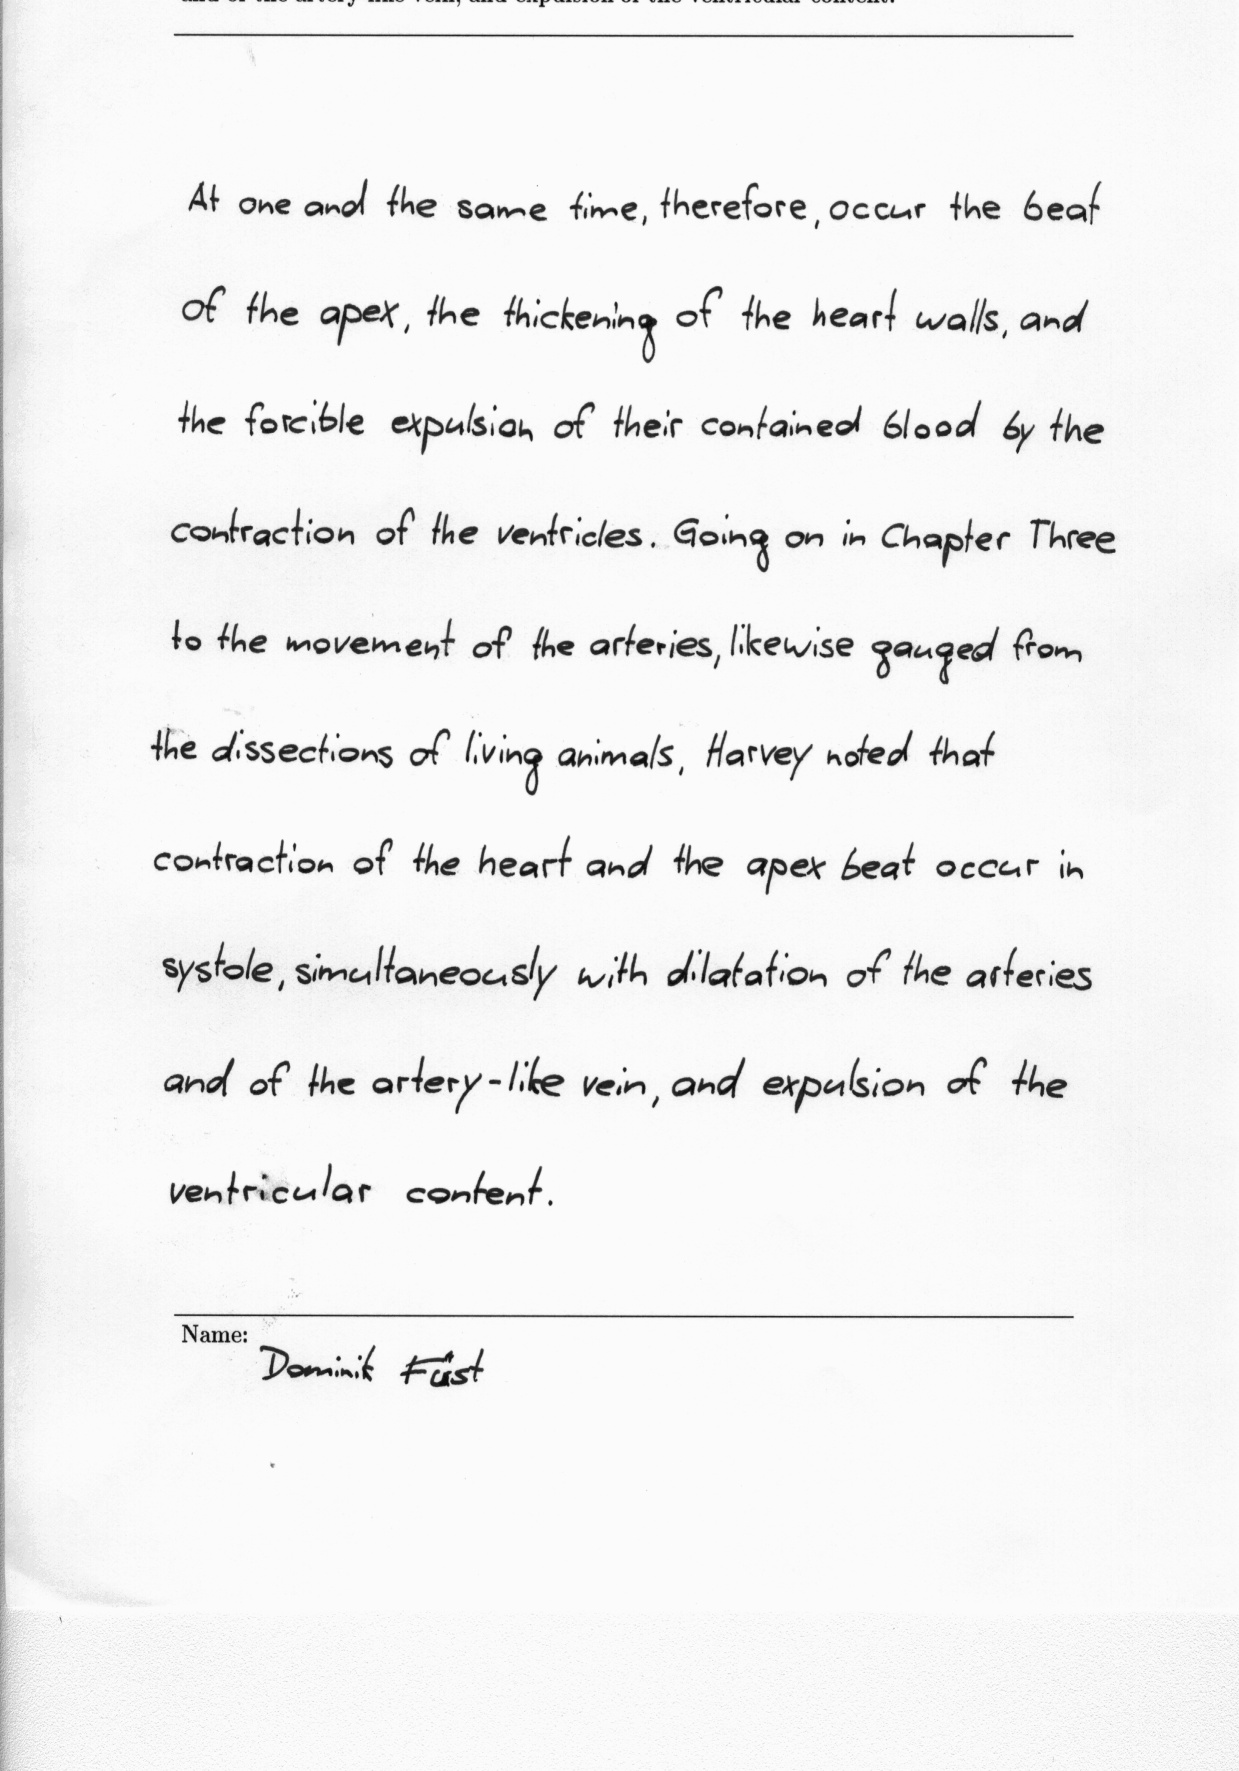 and of the artery-like vein, and expulsion of the ventricular content.
At one and the same time, therefore, occur the beat
of the apex, the thickening of the heart walls, and
the forcible expulsion of their contained blood by the
contraction of the ventricles. Going on in Chapter Three
to the movement of the arteries, likewise gauged from
the dissections of living animals, Harvey noted that
contraction of the heart and the apex beat occur in
systole, simultaneously with dilatation of the arteries
and of the artery-like vein, and expulsion of the
ventricular content.
Name:
Dominik Füst